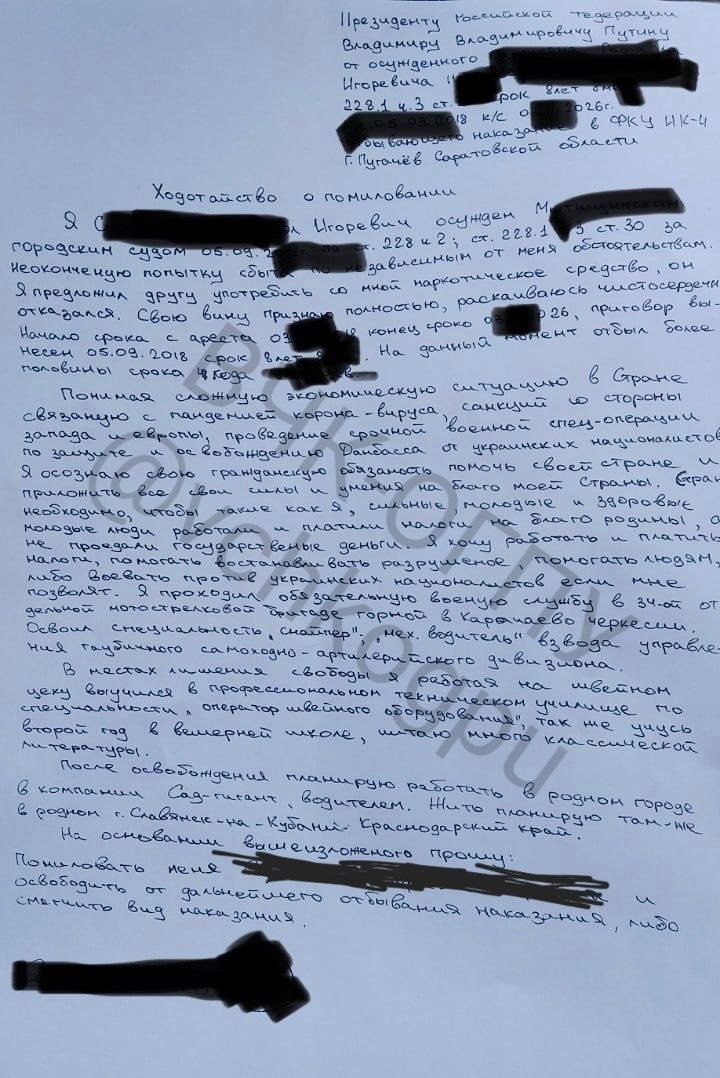 Президенту Российской Федерации
Владимиру Владимировичу Путину
от осужденного
Игоревича
228.1 ч.3 ст. срок 8лет
05.09.2018 к/с 03 2026г.
отбывающего наказание в ФКУ ИК-4
г. Пугачёв Саратовской области
Ходотайство о помиловании
Я С Игоревич осужден Мытищинским
городским судом 05.09. ст. 228 ч 2; ст. 228.1 3 ст. 30 за
неоконченую попытку сбыта по независимым от меня обстоятельствам.
Я предложил другу употребить со мной наркотическое средство, он
отказался. Свою вину признаю полностью, раскаиваюсь чистосердечно
Начало срока с ареста 03 18 конец сроко 03 026, приговор вы-
несен 05.09.2018 срок 8лет . На данный момент отбыл более
половины срока 4года
Понимая сложную экономическую ситуацию в Стране
связаную с пандемией корона-вируса, санкций со стороны
запада и европы, проведение срочной военной спец-операции
по защите и освобождению Донбасса от украинских националистов
Я осознаю свою гражданскую обязаность помочь своей стране и
приложить все свои силы и умения на благо моей Страны. Стране
необходимо, чтобы такие как я, сильные, молодые и здоровые
молодые люди работали и платили налоги на благо родины, а
не проедали государственые деньги. Я хочу работать и платить
налоги, помогать востанавливать разрушеное, помогать людям,
либо воевать против украинских националистов если мне
позволят. Я проходил обязательную военую службу в 34-ой от-
дельной мотострелковой бригаде горной в Карачаево черкесии.
Освоил специальность „снайпер", „мех. водитель" взвода управле-
ния гаубичного самоходно-артилерийского дивизиона.
В местах лишения свободы я работая на швейном
цеху выучился в профессиональном техническом училище по
специальности „оператор швейного оборудования", так же учусь
второй год в вечерней школе, читаю много классической
литературы.
После освобождения планирую работать в родном городе
в компании Сад-гигант, водителем. Жить планирую там-же
в родном г. Славянск-на-Кубани Краснодарский край.
На основании вышеизложеного прошу:
Помиловать меня и
освободить от дальнейшего отбывания наказания, либо
смягчить вид наказания.
ВЧК-ОГПУ
@vchkogpu